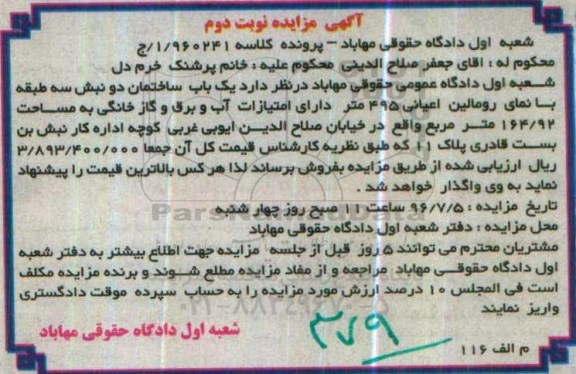 آگهی مزایده نوبت دوم
شعبه اول دادگاه حقوقی مهاباد – پرونده کلاسه ۹۶۰۲۴۱/۱/ج
محکوم له : اقای جعفر صلاح الدینی محکوم علیه : خانم پرشنک خرم دل
شعبه اول دادگاه عمومی حقوقی مهاباد درنظر دارد یک باب ساختمان دو نبش سه طبقه
با نمای رومالین اعیانی ۴۹۵ متر دارای امتیازات آب و برق و گاز خانگی به مساحت
۱۶۴/۹۲ متر مربع واقع در خیابان صلاح الدین ایوبی غربی کوچه اداره کار نبش بن
بست قادری پلاک ۱۱ که طبق نظریه کارشناس قیمت کل آن جمعا ۳/۸۹۳/۴۰۰/۰۰۰
ریال ارزیابی شده از طریق مزایده بفروش برساند لذا هر کس بالاترین قیمت را پیشنهاد
نماید به وی واگذار خواهد شد .
تاریخ مزایده : ۹۶/۷/۵ ساعت ۱۱ صبح روز چهار شنبه
محل مزایده : دفتر شعبه اول دادگاه حقوقی مهاباد
مشتریان محترم می توانند ۵ روز قبل از جلسه مزایده جهت اطلاع بیشتر به دفتر شعبه
اول دادگاه حقوقی مهاباد مراجعه و از مفاد مزایده مطلع شوند و برنده مزایده مکلف
است فی المجلس ۱۰ درصد ارزش مورد مزایده را به حساب سپرده موقت دادگستری
واریز نمایند
شعبه اول دادگاه حقوقی مهاباد
۳۷۹
م الف ۱۱۶